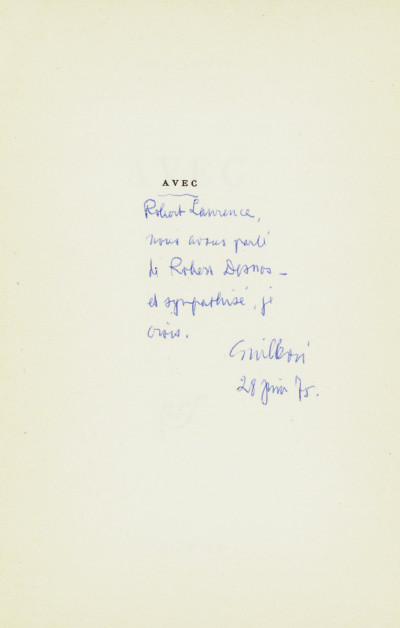 AVEC
Robert Lawrence,
nous avons parlé
de Robert Desnos –
et sympathisé, je
crois.
Guillevic
28 juin 75.